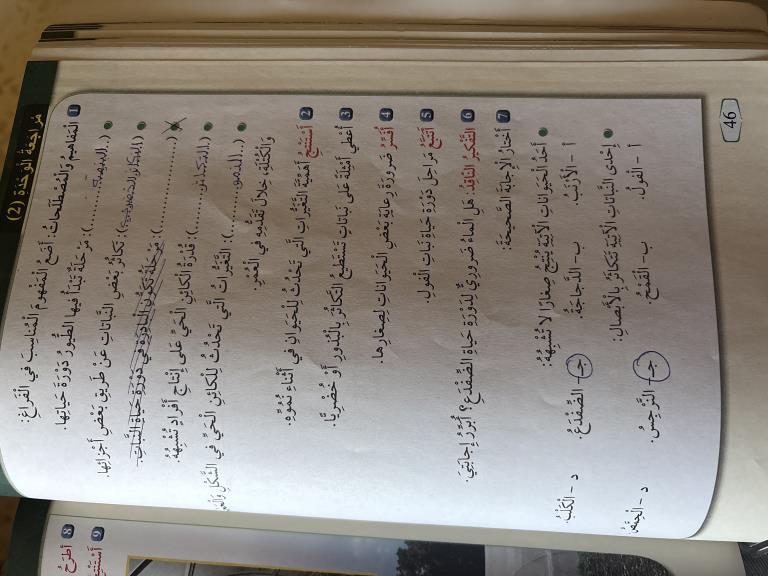 مُراجَعَةُ الْوَحْدَةِ (2)
1 الْمَفاهيمُ وَالْمُصْطَلَحاتُ: أَضَعُ الْمَفْهومَ الْمُناسِبَ في الْفَراغِ:
(..البيضة..........): مَرْحَلَةٌ تَبْدَأُ فيها الطُّيورُ دَوْرَةَ حَياتِها.
(التكاثر الخضري): تَكاثُرُ بَعْضِ النَّباتاتِ عَنْ طَريقِ بَعْضِ أَجْزائِها.
(....................): مَرْحَلَةُ تَكَوُّنِ الْبادِرَةِ في دَوْرَةِ حَياةِ النَّباتِ.
(..التكاثر..........): قُدْرَةُ الْكائِنِ الْحَيِّ عَلى إِنْتاجِ أَفْرادٍ تُشْبِهُهُ.
(..النمو..........): التَّغَيُّراتُ الَّتي تَحْدُثُ لِلْكائِنِ الْحَيِّ في الشَّكْلِ
وَالْكُتْلَةِ، خِلالَ تَقَدُّمِهِ في الْعُمُرِ.
2 أَسْتَنْتِجُ أَهَمِّيَّةَ التَّغَيُّراتِ الَّتي تَحْدُثُ لِلْحَيَوانِ في أَثْناءِ نُمُوِّهِ.
3 أُعْطي أَمْثِلَةً عَلى نَباتاتٍ تَسْتَطيعُ التَّكاثُرَ بِالْبُذورِ أَوْ خُضْرِيًّا.
4 أُفَسِّرُ ضَرورَةَ رِعايَةِ بَعْضِ الْحَيَواناتِ لِصِغارِها.
5 أَتَتَبَّعُ مَراحِلَ دَوْرَةِ حَياةِ نَباتِ الْفولِ.
6 التَّفْكيرُ النّاقِدُ: هَلِ الْماءُ ضَرورِيٌّ لِدَوْرَةِ حَياةِ الضِّفْدَعِ؟ أُبَرِّرُ إِجابَتِيَ.
7 أَخْتارُ الْإِجابَةَ الصَّحيحَةَ:
أَحَدُ الْحَيَواناتِ الْآتِيَةِ يُنْتِجُ صِغارًا لا تُشْبِهُهُ:
أ - الْأَرْنَبُ. ب - الدَّجاجَةُ. جـ - الضِّفْدَعُ. د - الْكَلْبُ.
إِحْدى النَّباتاتِ الْآتِيَةِ تَتَكاثَرُ بِالْأَبْصالِ:
أ - الْفولُ. ب - الْقَمْحُ. جـ - النَّرْجِسُ. د -
46
8 أَطْرَحُ
9